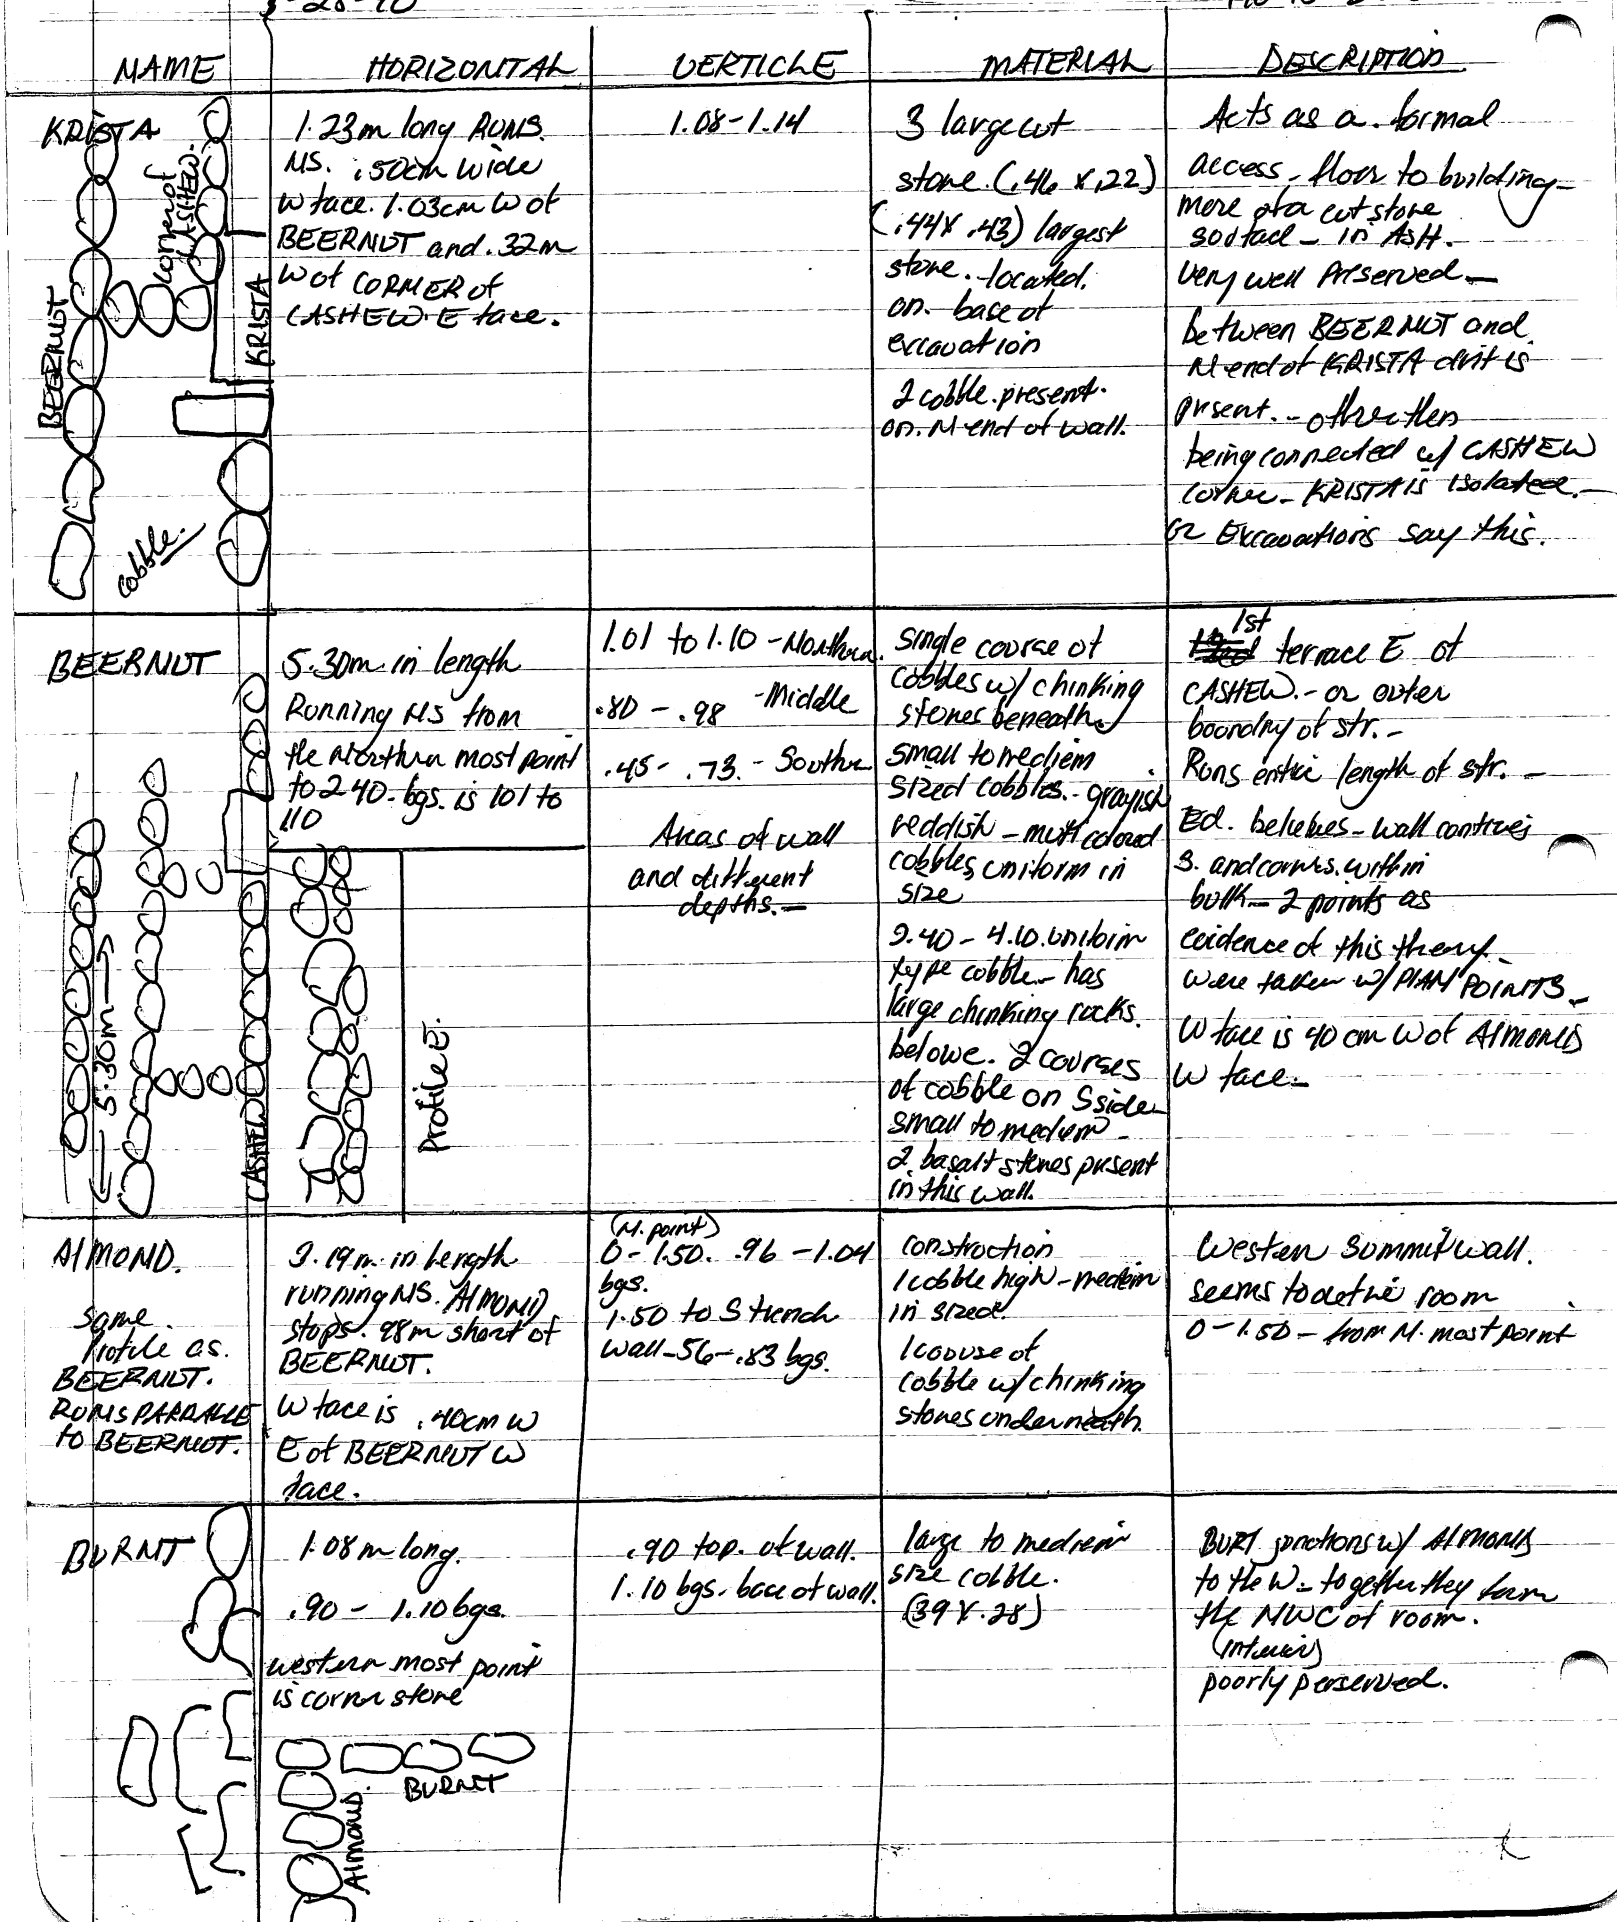 3-28-90
NAME HORIZONTAL VERTICLE MATERIAL DESCRIPTION
KRISTA
corner of
CASHEW.
KRISTA
BEERNUT
cobble.
1.23m long RUNS.
NS. .50cm wide
W face. 1.03cm W of
BEERNUT and .32m
W of CORNER of
CASHEW E face.
1.08-1.14
3 large cut
stone. (.46 x .22)
(.44 x .43) largest
stone. located.
on. base of
excavation
2 cobble. present.
on. N end of wall.
Acts as a. formal
access - floor to building -
more of a cut stone
- in ASH.
very well Preserved -
between BEERNUT and
N end of KRISTA is
prsent. - other then
being connected w/ CASHEW
corner - KRISTA IS isolated. -
Excavations say this.
BEERNUT
5.30m
CASHEW
5.30m in length
Running NS from
the Northern most point
to 2.40 - bgs. is 101 to
110
Profile E.
1.01 to 1.10 - Northern.
.80 - .98 - Middle
.45 - .73. - Southern
Areas of wall
and different
depths. -
single course of
cobbles w/ chinking
stones beneath.
small to mediem
sized cobbles. - grayish
reddish - multi colored
cobbles uniform in
size
2.40 - 4.10. uniform
type cobble - has
large chinking rocks.
belowe. 2 courses
of cobble on S side -
small to medium -
2 basalt stones present
in this wall.
1st
terrace E of
CASHEW. - or outer
boundry of str. -
Runs entire length of str. -
Ed. beleives - wall continues
S. and corners. within
bulk - 2 points as
evidence of this theory -
were taken w/ PLAN POINTS -
W face is 40 cm W of AlMONDS
W face -
AlMOND.
same.
Profile as.
BEERNUT.
RUNS PARRALLE
to BEERNUT.
3.19m in length
running NS. AlMOND
stops .98m short of
BEERNUT.
W face is .40cm W
E of BEERNUT W
face.
(N. point)
0 - 1.50. .96 - 1.04
bgs.
1.50 to S trench
wall - 56 - .83 bgs.
construction
1 cobble high - mediem
in sized.
1 couse of
cobble w/ chinking
stones underneath.
Western Summit wall.
seems to define room
0 - 1.50 - from N. most point
BURNT
1.08 m long.
.90 - 1.10 bgs.
western most point
is corner stone
BURNT
AlMONDS
.90 top. of wall.
1.10 bgs. base of wall.
large to mediem
size cobble.
(39 x .28)
BURT junctions w/ AlMONDS
to the W - together they form
the NWC of room.
(interior)
poorly perserved.